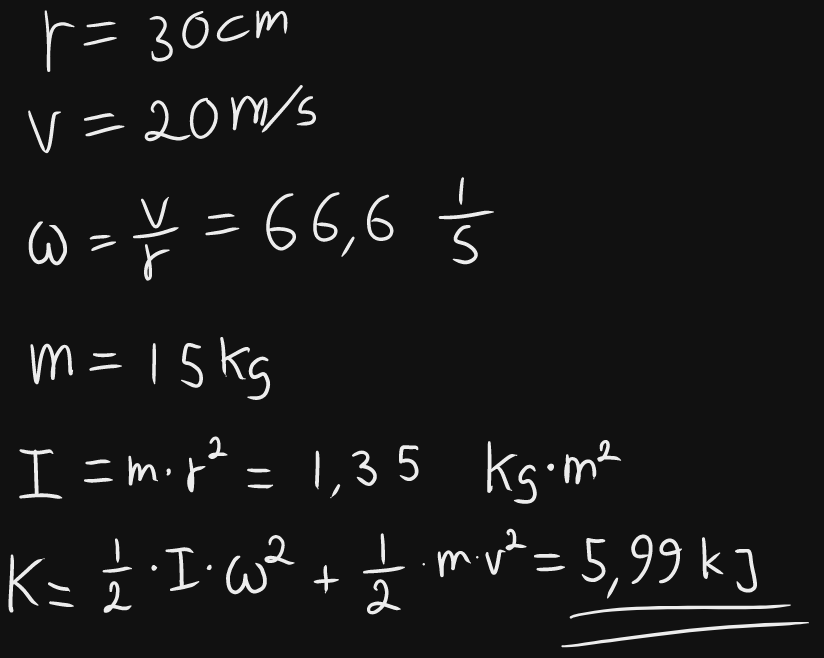 r = 30cm
v = 20 m/s
ω = v/r = 66,6 1/s
m = 15 kg
I = m·r² = 1,35 kg·m²
K = 1/2 · I · ω² + 1/2 · m·v² = 5,99 kJ